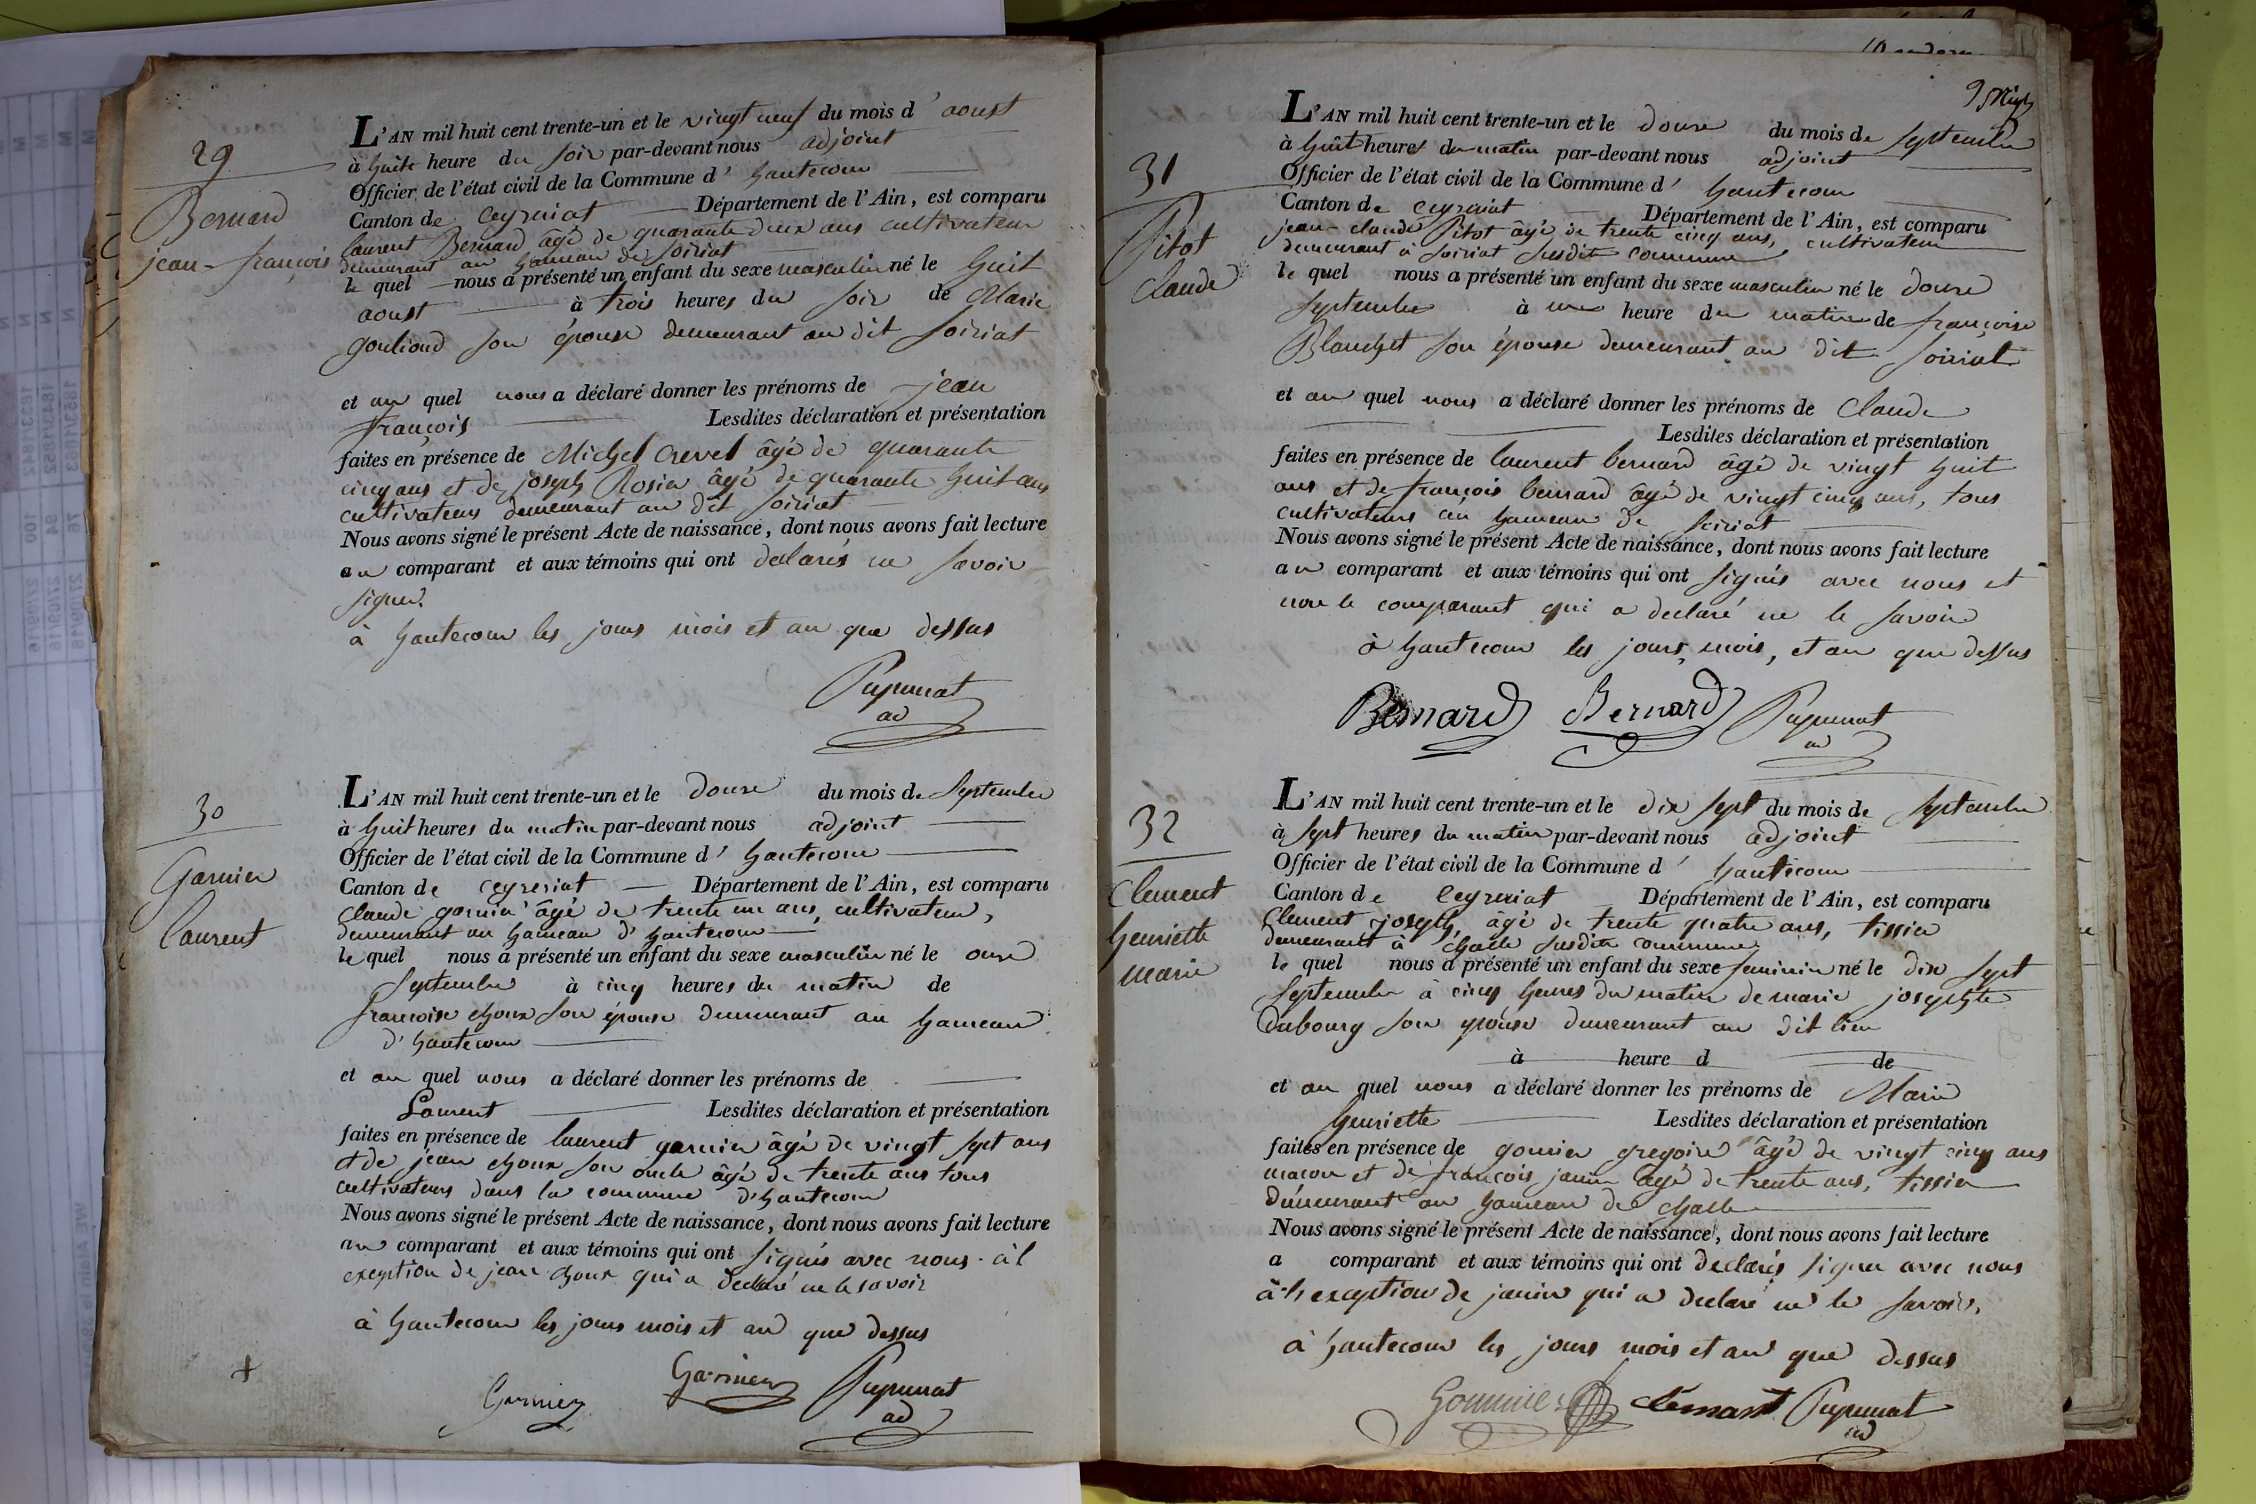 29
Bernard
jean-françois
L'AN mil huit cent trente-un et le vingt neuf du mois d'aoust
à huit heure du soir par-devant nous adjoint
Officier de l'état civil de la Commune d'hautecour
Canton de Ceyzeriat Département de l'Ain, est comparu
laurent Bernard âgé de quarante deux ans cultivateur
demeurant au hameau de Soiriat
le quel nous a présenté un enfant du sexe masculin né le huit
aoust à trois heures du soir de Marie
goulioud son épouse demeurant au dit Soiriat
et au quel nous a déclaré donner les prénoms de jean
françois Lesdites déclaration et présentation
faites en présence de Michel Crevel âgé de quarante
cinq ans et de joseph Rosier âgé de quarante huit ans
cultivateurs demeurant au dit Soiriat
Nous avons signé le présent Acte de naissance, dont nous avons fait lecture
au comparant et aux témoins qui ont declarés ne savoir
signer.
à hautecour les jours mois et an que dessus
Pupunat
ad
30
Garnier
laurent
L'AN mil huit cent trente-un et le douze du mois de Septembre
à huit heures du matin par-devant nous adjoint
Officier de l'état civil de la Commune d'hautecour
Canton de Ceyzeriat Département de l'Ain, est comparu
Claude garnier âgé de trente un ans, cultivateur,
demeurant au hameau d'hautecour
le quel nous a présenté un enfant du sexe masculin né le onze
Septembre à cinq heures du matin de
françoise choux son épouse demeurant au hameau
d'hautecour
et au quel nous a déclaré donner les prénoms de
Laurent Lesdites déclaration et présentation
faites en présence de laurent garnier âgé de vingt sept ans
et de jean choux son oncle âgé de trente ans tous
cultivateurs dans la commune d'hautecour
Nous avons signé le présent Acte de naissance, dont nous avons fait lecture
au comparant et aux témoins qui ont signés avec nous à l
exception de jean choux qui a declaré ne le savoir
à hautecour les jours mois et an que dessus
Garnier Garnier Pupunat
ad
31
Pitot
Claude
L'AN mil huit cent trente-un et le douze du mois de Septembre
à huit heures du matin par-devant nous adjoint
Officier de l'état civil de la Commune d'hautecour
Canton de Ceyzeriat Département de l'Ain, est comparu
jean-claude Pitot âgé de trente cinq ans, cultivateur
demeurant à Soiriat susdite commune
le quel nous a présenté un enfant du sexe masculin né le douze
Septembre à une heure du matin de françoise
Blanchet son épouse demeurant au dit Soiriat
et au quel nous a déclaré donner les prénoms de Claude
Lesdites déclaration et présentation
faites en présence de laurent bernard âgé de vingt huit
ans et de françois bernard âgé de vingt cinq ans, tous
cultivateurs au hameau de Soiriat
Nous avons signé le présent Acte de naissance, dont nous avons fait lecture
au comparant et aux témoins qui ont signés avec nous et
non le comparant qui a declaré ne le savoir
à hautecour les jours, mois, et an que dessus
Bernard Bernard Pupunat
ad
32
Clement
henriette
marie
L'AN mil huit cent trente-un et le dix sept du mois de Septembre
à sept heures du matin par-devant nous adjoint
Officier de l'état civil de la Commune d'hautecour
Canton de Ceyzeriat Département de l'Ain, est comparu
Clement joseph, âgé de trente quatre ans, tissier
demeurant à challe susdite commune
le quel nous a présenté un enfant du sexe feminin né le dix sept
Septembre à cinq heures du matin de marie josephte
dubourg son épouse demeurant au dit lieu
à heure d de
et au quel nous a déclaré donner les prénoms de Marie
henriette Lesdites déclaration et présentation
faites en présence de gomier gregoire âgé de vingt cinq ans
macon et de françois janin âgé de trente ans, tissier
demeurant au hameau de challe
Nous avons signé le présent Acte de naissance, dont nous avons fait lecture
a comparant et aux témoins qui ont declarés signer avec nous
à l'exception de janin qui a declaré ne le savoir,
à hautecour les jours mois et an que dessus
Clemant Pupunat
ad